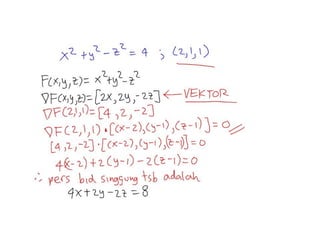 x² + y² - z² = 4 ; (2,1,1)
F(x,y,z) = x²+y²-z²
∇F(x,y,z)=[2x,2y,-2z] ← VEKTOR
∇F(2,1,1)=[4,2,-2]
∇F(2,1,1)•[(x-2),(y-1),(z-1)]=0
[4,2,-2]·[(x-2),(y-1),(z-1)]=0
4(x-2)+2(y-1)-2(z-1)=0
∴ pers bid singgung tsb adalah
4x+2y-2z=8